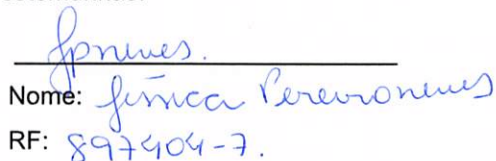 Jpneves.
Nome: Jéssica Pereira neves
RF: 897404-7.